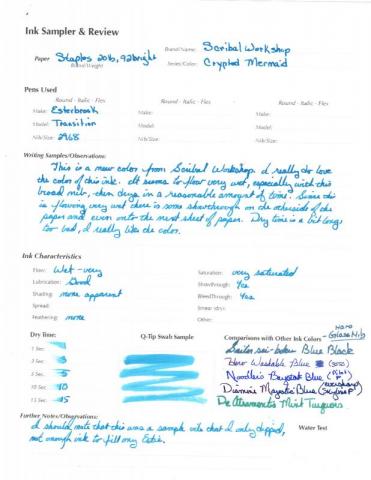 Ink Sampler & Review
Brand Name: Scribal Workshop
Paper Staples 20lb, 92bright Series/Color: Crypted Mermaid
Brand/Weight
Pens Used
Round - Italic - Flex Round - Italic - Flex Round - Italic - Flex
Make: Esterbrook Make: Make:
Model: Transition Model: Model:
Nib/Size: 2968 Nib/Size: Nib/Size:
Writing Samples/Observations:
This is a new color from Scribal Workshop. I really do love
the color of this ink. It seems to flow very wet, especially with this
broad nib, then drys in a reasonable amount of time. Since this
is flowing very wet there is some showthrough on the otherside of the
paper and even onto the next sheet of paper. Dry time is a bit long
too bad, I really like the color.
Ink Characteristics
Flow: Wet - very Saturation: very saturated
Lubrication: Good ShowThrough: Yes
Shading: none apparent BleedThrough: Yes
Spread: Smear (dry):
Feathering: none Other:
Dry Time: Q-Tip Swab Sample Comparisons with Other Ink Colors - Nano
GlassNib
1 Sec. Sailor sei-boku Blue Black
3 Sec. 3 Washable Blue
5 Sec. 5 Noodler's Baystate Blue
10 Sec. 10 Diamine Majestic Blue
15 Sec. 15 De Atramentis Mint Turquois
Further Notes/Observations: Water Test
I should note that this was a sample vile that I only dipped,
not enough ink to fill my Estie.